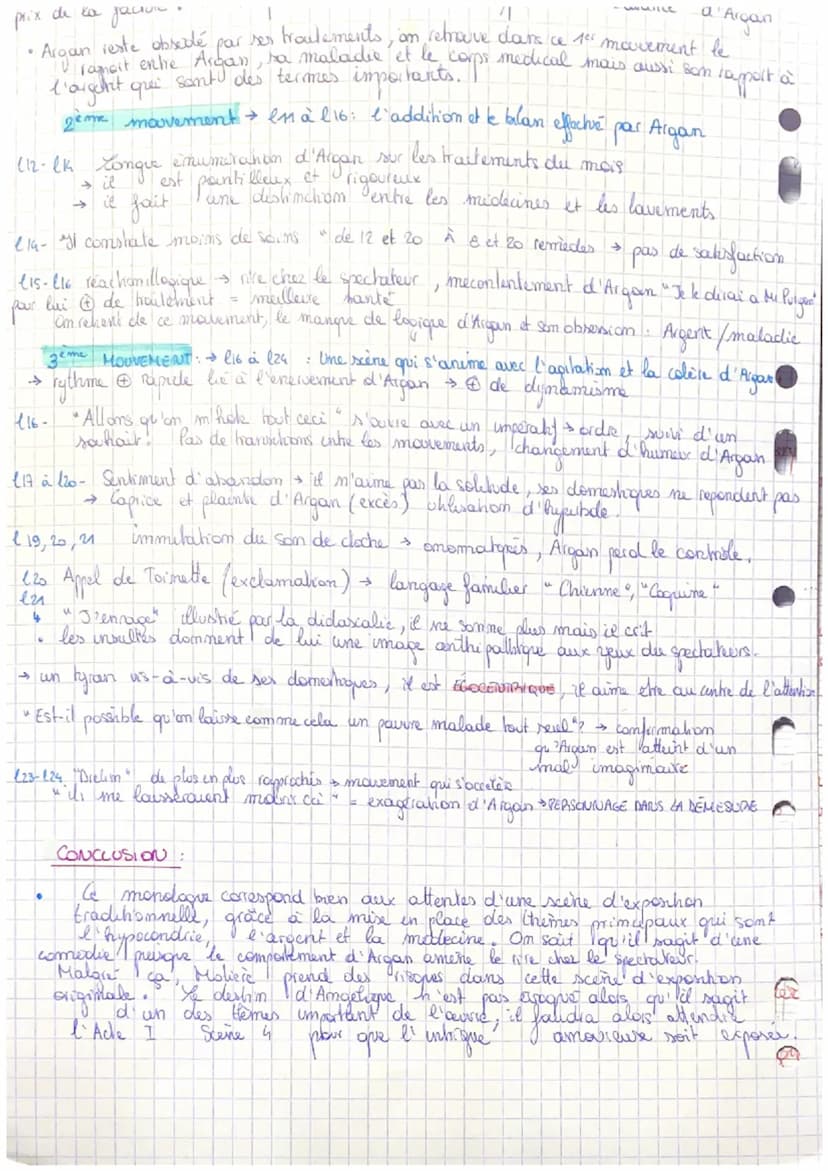 prix de la facture.
d'Argan
• Argan reste obsédé par ses traitements, on retrouve dans ce 1er mouvement le
rapport entre Argan, sa maladie et le corps médical mais aussi son rapport à
l'argent qui sont des termes importants.
2ème mouvement → l11 à l16: l'addition et le bilan effectué par Argan
l12-l14 Longue énumération d'Argan sur les traitements du mois
→ il est pointilleux et rigoureux
→ il fait une distinction entre les médecines et les lavements
l14- Il constate moins de soins "de 12 et 20 À 8 et 20 remèdes → pas de satisfaction
l15-l16 réaction illogique → rire chez le spectateur, mécontentement d'Argan "Je le dirai a Mr Purgon"
pour lui ⊕ de traitement = meilleure santé
On retient de ce mouvement, le manque de logique d'Argan et son obsession : Argent/maladie
3ème MOUVEMENT : → l16 à l24 : Une scène qui s'anime avec l'agitation et la colère d'Argan
→ rythme ⊕ rapide lié à l'enervement d'Argan → ⊕ de dynamisme
l16- "Allons qu'on m'hote tout ceci" s'ouvre avec un impératif → ordre, suivi d'un
souhait. Pas de transitions entre les mouvements, changement d'humeur d'Argan
l17 à l20- Sentiment d'abandon → il n'aime pas la solitude, ses domestiques ne repondent pas
→ Caprice et plainte d'Argan (excès) utilisation d'hyperbole.
l19, 20, 21 immitation du son de cloche → onomatopés, Argan perd le contrôle.
l20 Appel de Toinette (exclamation) → langage familier "Chienne", "Coquine"
l21
↳ "J'enrage" illustré par la didascalie, il ne sonne plus mais il crit
• les insultes donnent de lui une image anthipathique aux yeux du spectateurs.
→ un tyran vis-à-vis de ses domestiques, il est EGOCENTRIQUE, il aime etre au centre de l'attention
"Est-il possible qu'on laisse comme cela un pauvre malade tout seul"? → confirmation
qu'Argan est atteint d'un
mal imaginaire
l23-l24 "Drelin" de plus en plus rapprochés → mouvement qui s'accelère
"ils me laisseraient mourir ici" = exagération d'Argan → PERSONNAGE DANS LA DÉMESURE
CONCLUSION :
• Ce monologue correspond bien aux attentes d'une scène d'exposition
traditionnelle, grâce à la mise en place des thèmes principaux qui sont
l'hypocondrie, l'argent et la médecine. On sait qu'il sagit d'une
comédie puisque le comportement d'Argan amène le rire chez le spectateur.
Malgré ça, Molière prend des risques dans cette scène d'exposition
originale. Le destin d'Angélique n'est pas évoqué alors qu'il sagit
d'un des thèmes important de l'œuvre, il faudra alors attendre
l'Acte I Scène 4 pour que l'intrigue amoureuse soit exposée.